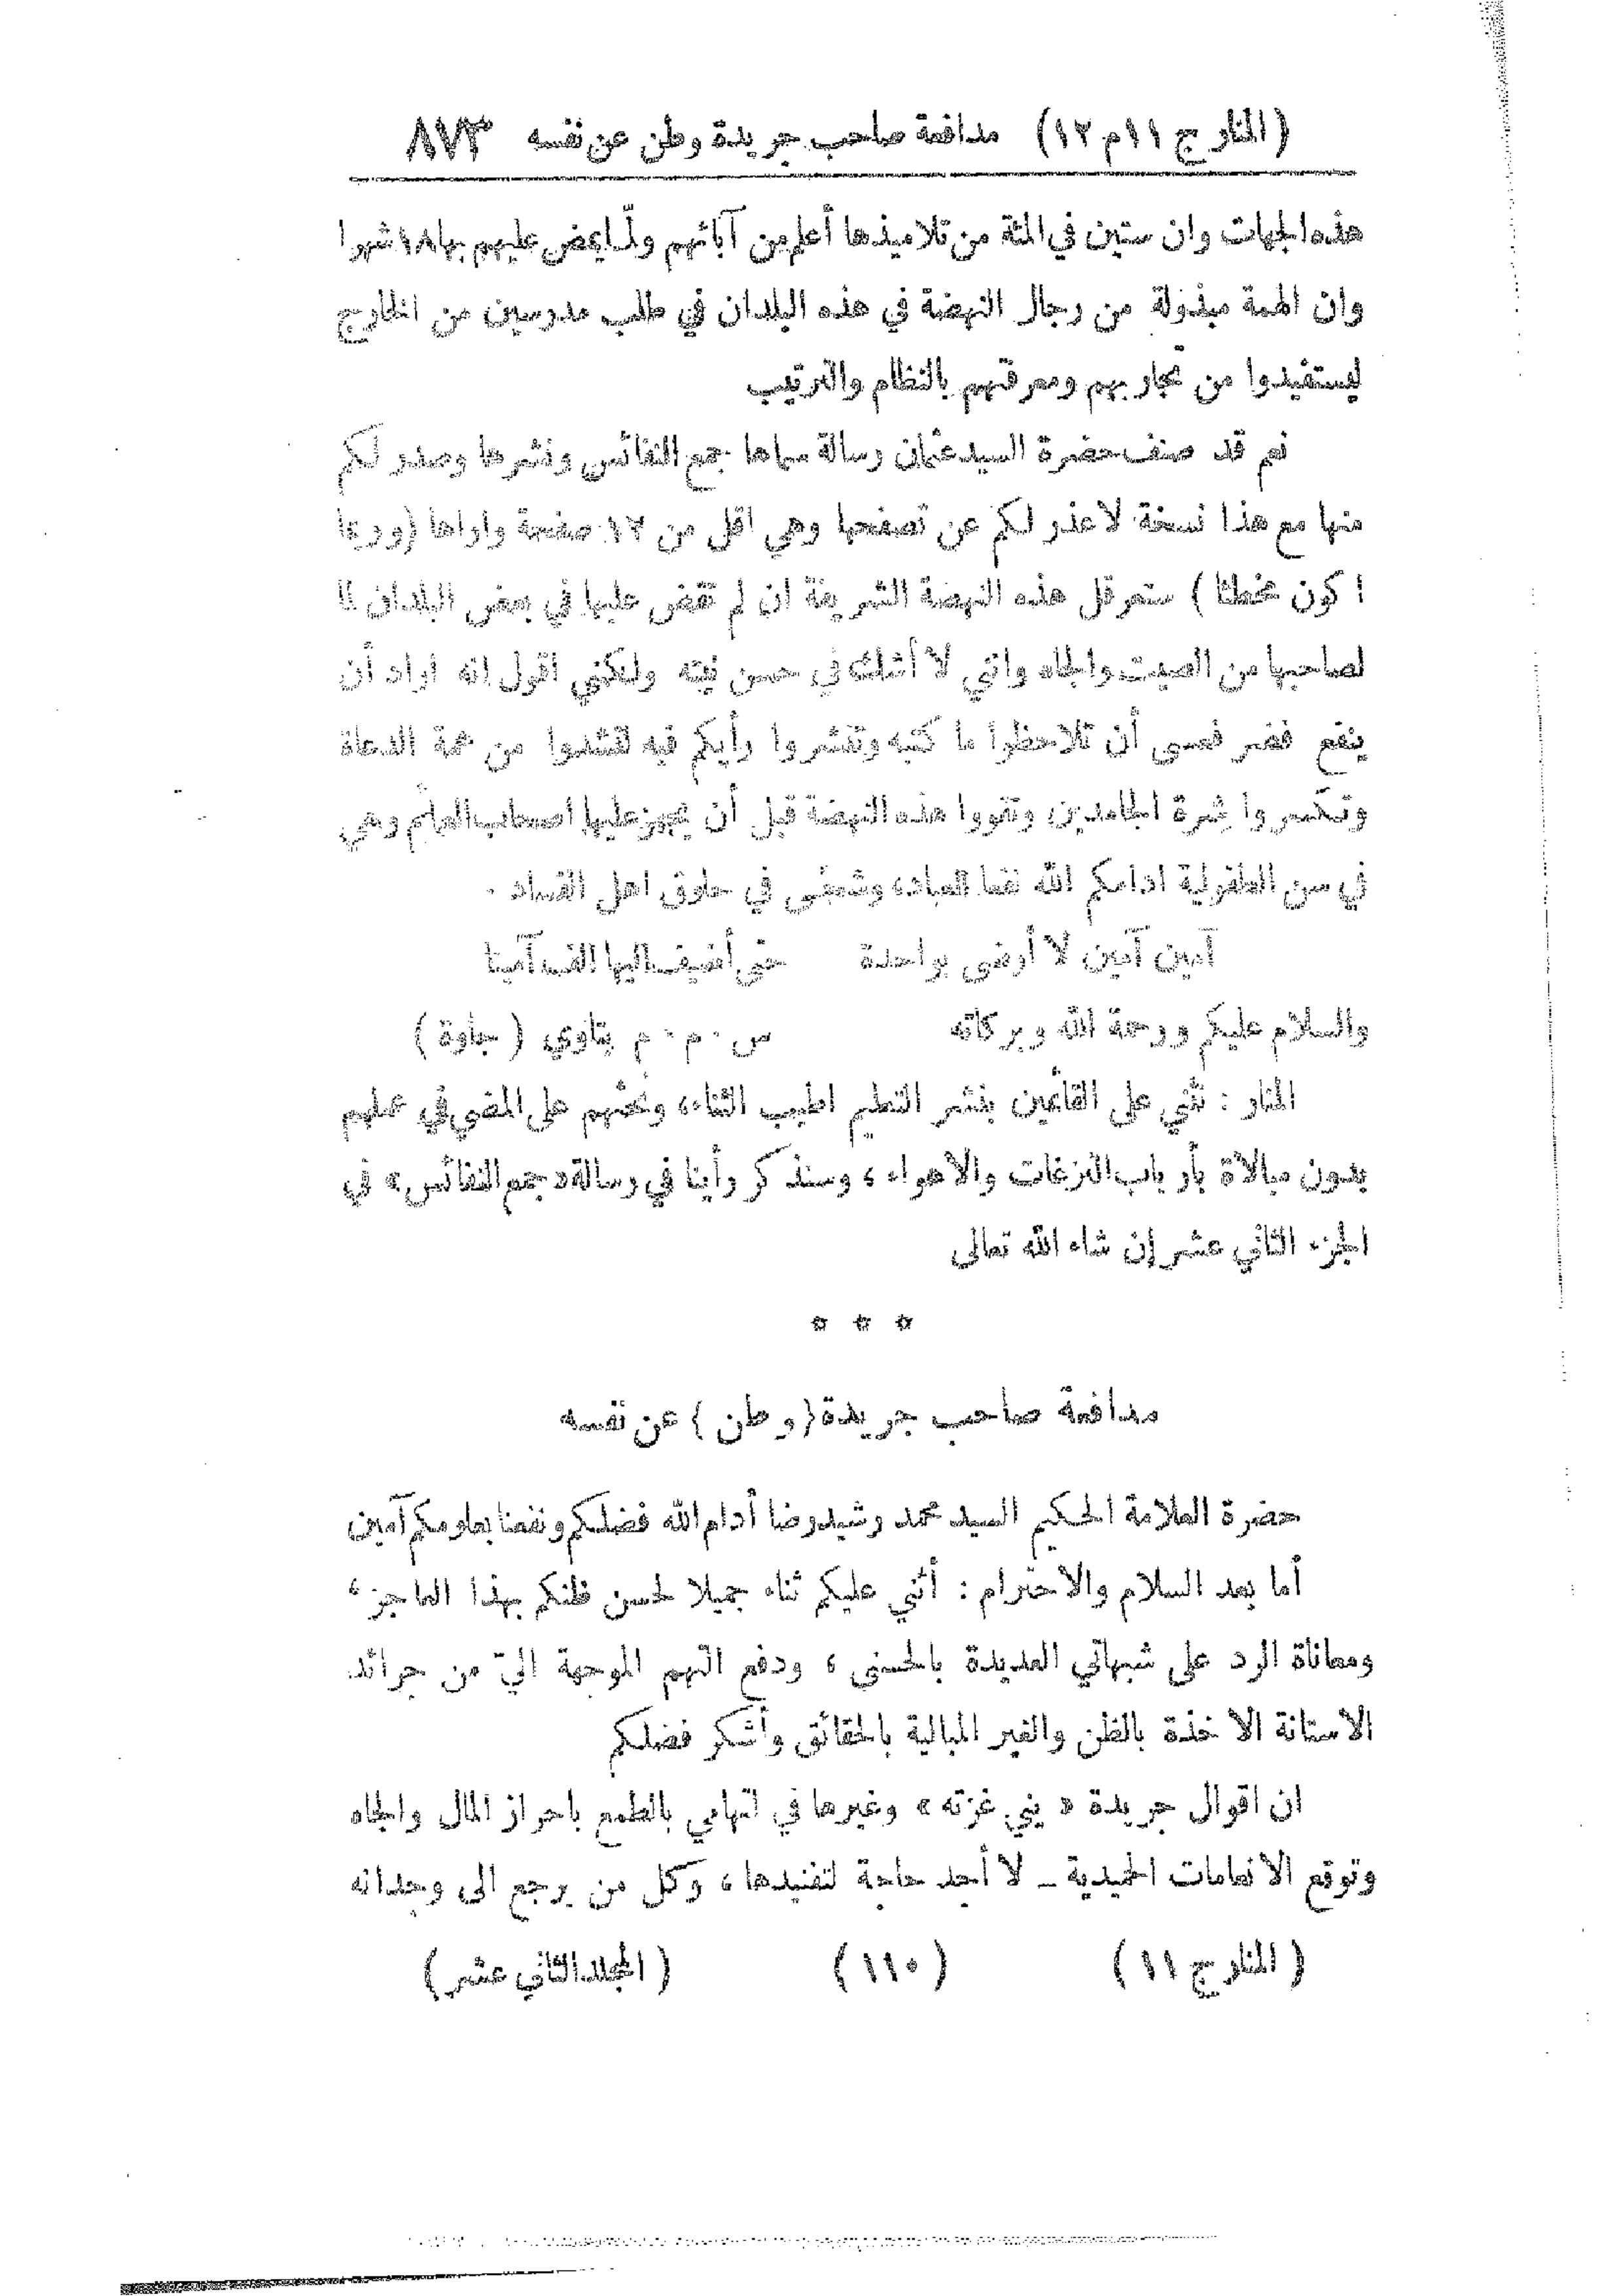 (المنار ج ١١ م ١٢) مدافعة صاحب جريدة وطن عن نفسه ٨٧٣
هذه الجهات وان ستين في المئة من تلاميذها أعلم من آبائهم ولمّا يمض عليهم بها ١٨ شهرا
وان الهمة مبذولة من رجال النهضة في هذه البلدان في طلب مدرسين من الخارج
ليستفيدوا من تجاربهم ومعرفتهم بالنظام والترتيب
نعم قد صنف حضرة السيد عثمان رسالة سماها جمع النفائس ونشرها وصدر لكم
منها مع هذا نسخة لا عذر لكم عن تصفحها وهي اقل من ١٢ صفحة واراها (وربما
اكون مخطئا) ستعرقل هذه النهضة الشريفة ان لم تقض عليها في بعض البلدان لما
لصاحبها من الصيت والجاه وانني لا أشك في حسن نيته ولكنني اقول إنه اراد أن
ينفع فضر فعسى أن تلاحظوا ما كتبه وتنشروا رأيكم فيه لتشدوا من همة الدعاة
وتكسروا شرة الجامدين وتقووا هذه النهضة قبل أن يجهز عليها اصحاب العمائم وهي
في سن الطفولية ادامكم الله نفعا للعباد، وشجى في حلوق اهل الفساد .
آمين آمين لا أرضى بواحدة حتى أضيف اليها الف آمينا
والسلام عليكم ورحمة الله وبركاته س . م . م بتاوي (جاوة)
المنار : نثني على القائمين بنشر التعليم اطيب الثناء، ونحثهم على المضي في عملهم
بدون مبالاة بأرباب النزغات والاهواء ، وسنذكر رأينا في رسالة « جمع النفائس » في
الجزء الثاني عشر إن شاء الله تعالى
* * *
مدافعة صاحب جريدة (وطن) عن نفسه
حضرة العلامة الحكيم السيد محمد رشيد رضا أدام الله فضلكم ونفعنا بعلومكم آمين
أما بعد السلام والاحترام : أثني عليكم ثناء جميلا لحسن ظنكم بهذا العاجز ،
ومعاناة الرد على شبهاتي العديدة بالحسنى ، ودفع التهم الموجهة اليّ من جرائد
الاستانة الآخذة بالظن والغير المبالية بالحقائق وأشكر فضلكم
ان اقوال جريدة « يني غزته » وغيرها في اتهامي بالطمع باحراز المال والجاه
وتوقع الانعامات الحميدية ــ لا أجد حاجة لتفنيدها ، وكل من يرجع الى وجدانه
(المنار ج ١١) (١١٠) (المجلد الثاني عشر)